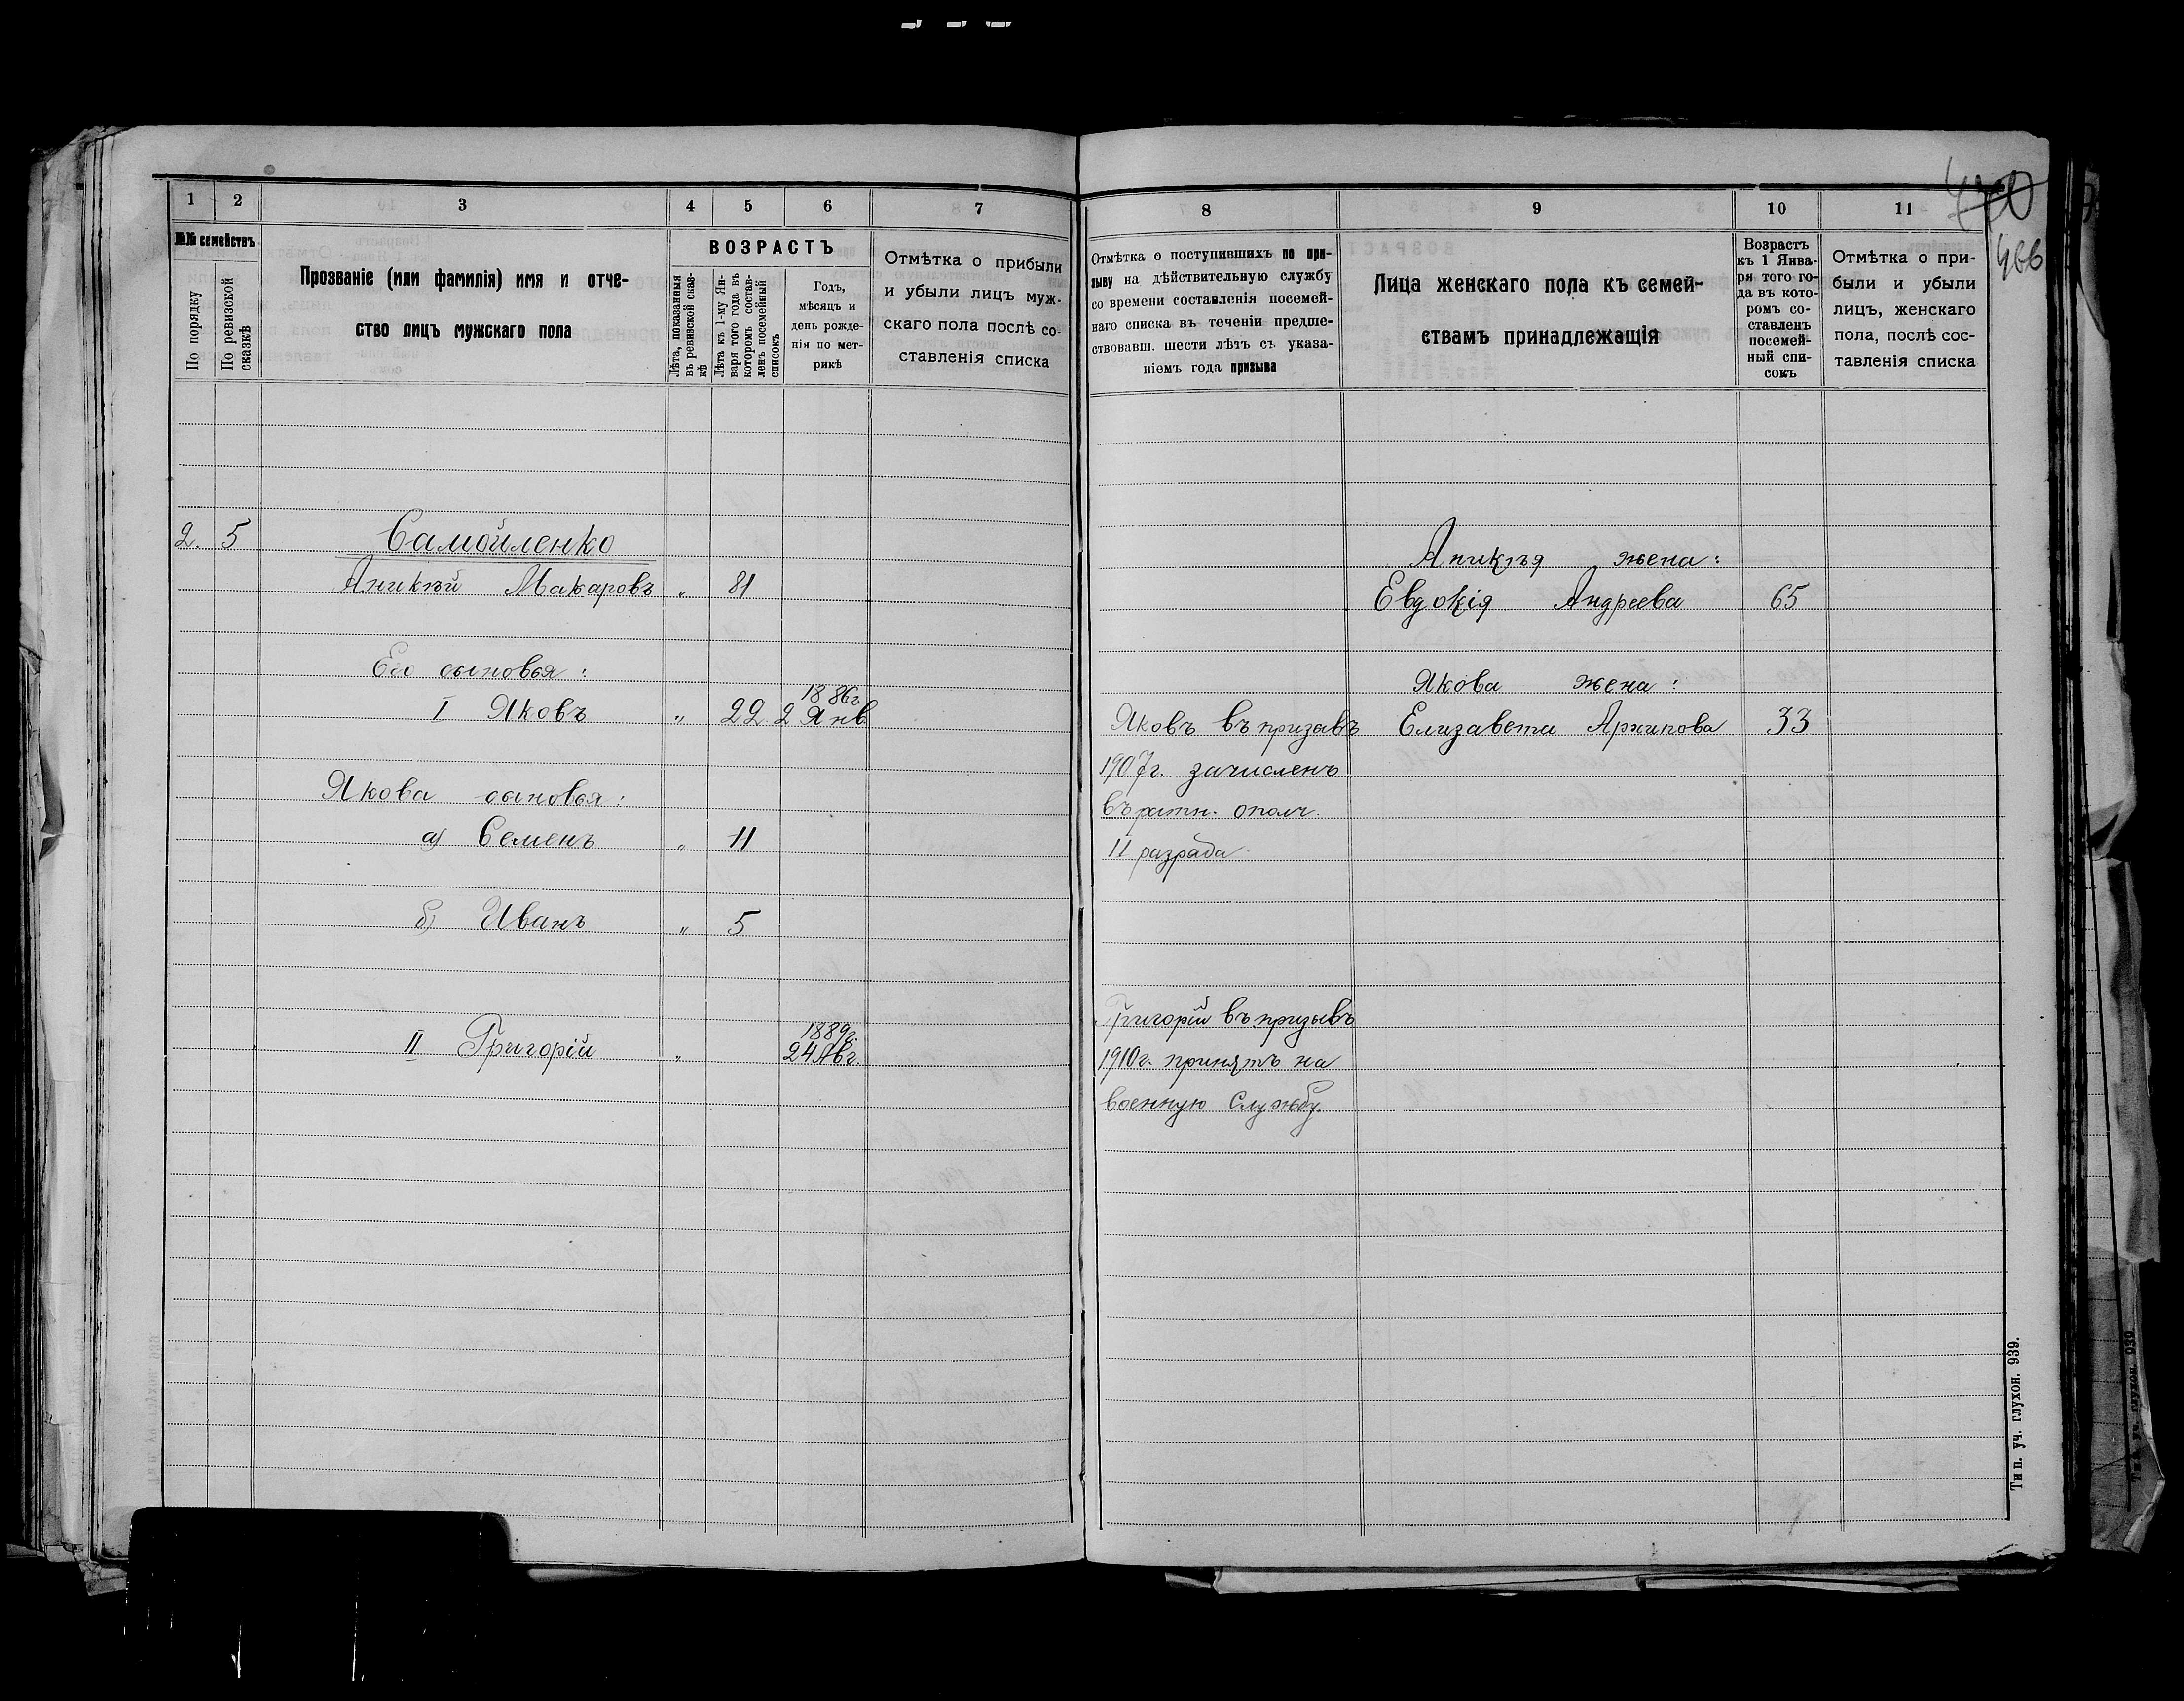 1 2 3 4 5 6 7
№№ семействъ
По порядку
По ревизской сказкѣ
Прозваніе (или фамилія) имя и отче-
ство лицъ мужскаго пола
ВОЗРАСТЪ
Лѣта, показанныя
въ ревизской сказ-
кѣ
Лѣта къ 1-му Ян-
варя того года въ
которомъ состав-
ленъ посемейный
списокъ
Годъ,
мѣсяцъ и
день рожде-
нія по мет-
рикѣ
Отмѣтка о прибыли
и убыли лицъ муж-
скаго пола послѣ со-
ставленія списка
2. 5 Самойленко
Аникѣй Макаровъ „ 81
Его сыновья:
1886г.
I Яковъ „ 22 2 Янв
Якова сыновья:
а) Семенъ „ 11
б) Иванъ „ 5
1889г.
II Григорій „ 24 Авг.
8 9 10 11
400
466
Отмѣтка о поступившихъ по при-
зыву на дѣйствительную службу
со времени составленія посемей-
наго списка въ теченіи предше-
ствовавш. шести лѣтъ съ указа-
ніемъ года призыва
Лица женскаго пола къ семей-
ствамъ принадлежащія
Возрастъ
къ 1 Янва-
ря того го-
да въ кото-
ромъ со-
ставленъ
посемей-
ный спи-
сокъ
Отмѣтка о при-
были и убыли
лицъ, женскаго
пола, послѣ сос-
тавленія списка
Аникѣя жена:
Евдокія Андреева 65
Якова жена:
Яковъ въ призывъ Елизавета Архипова 33
1907г. зачисленъ
въ ратн. ополч.
II разряда
Григорій въ призывъ
1910г. принятъ на
военную службу.
Тип. уч. глухон. 939.